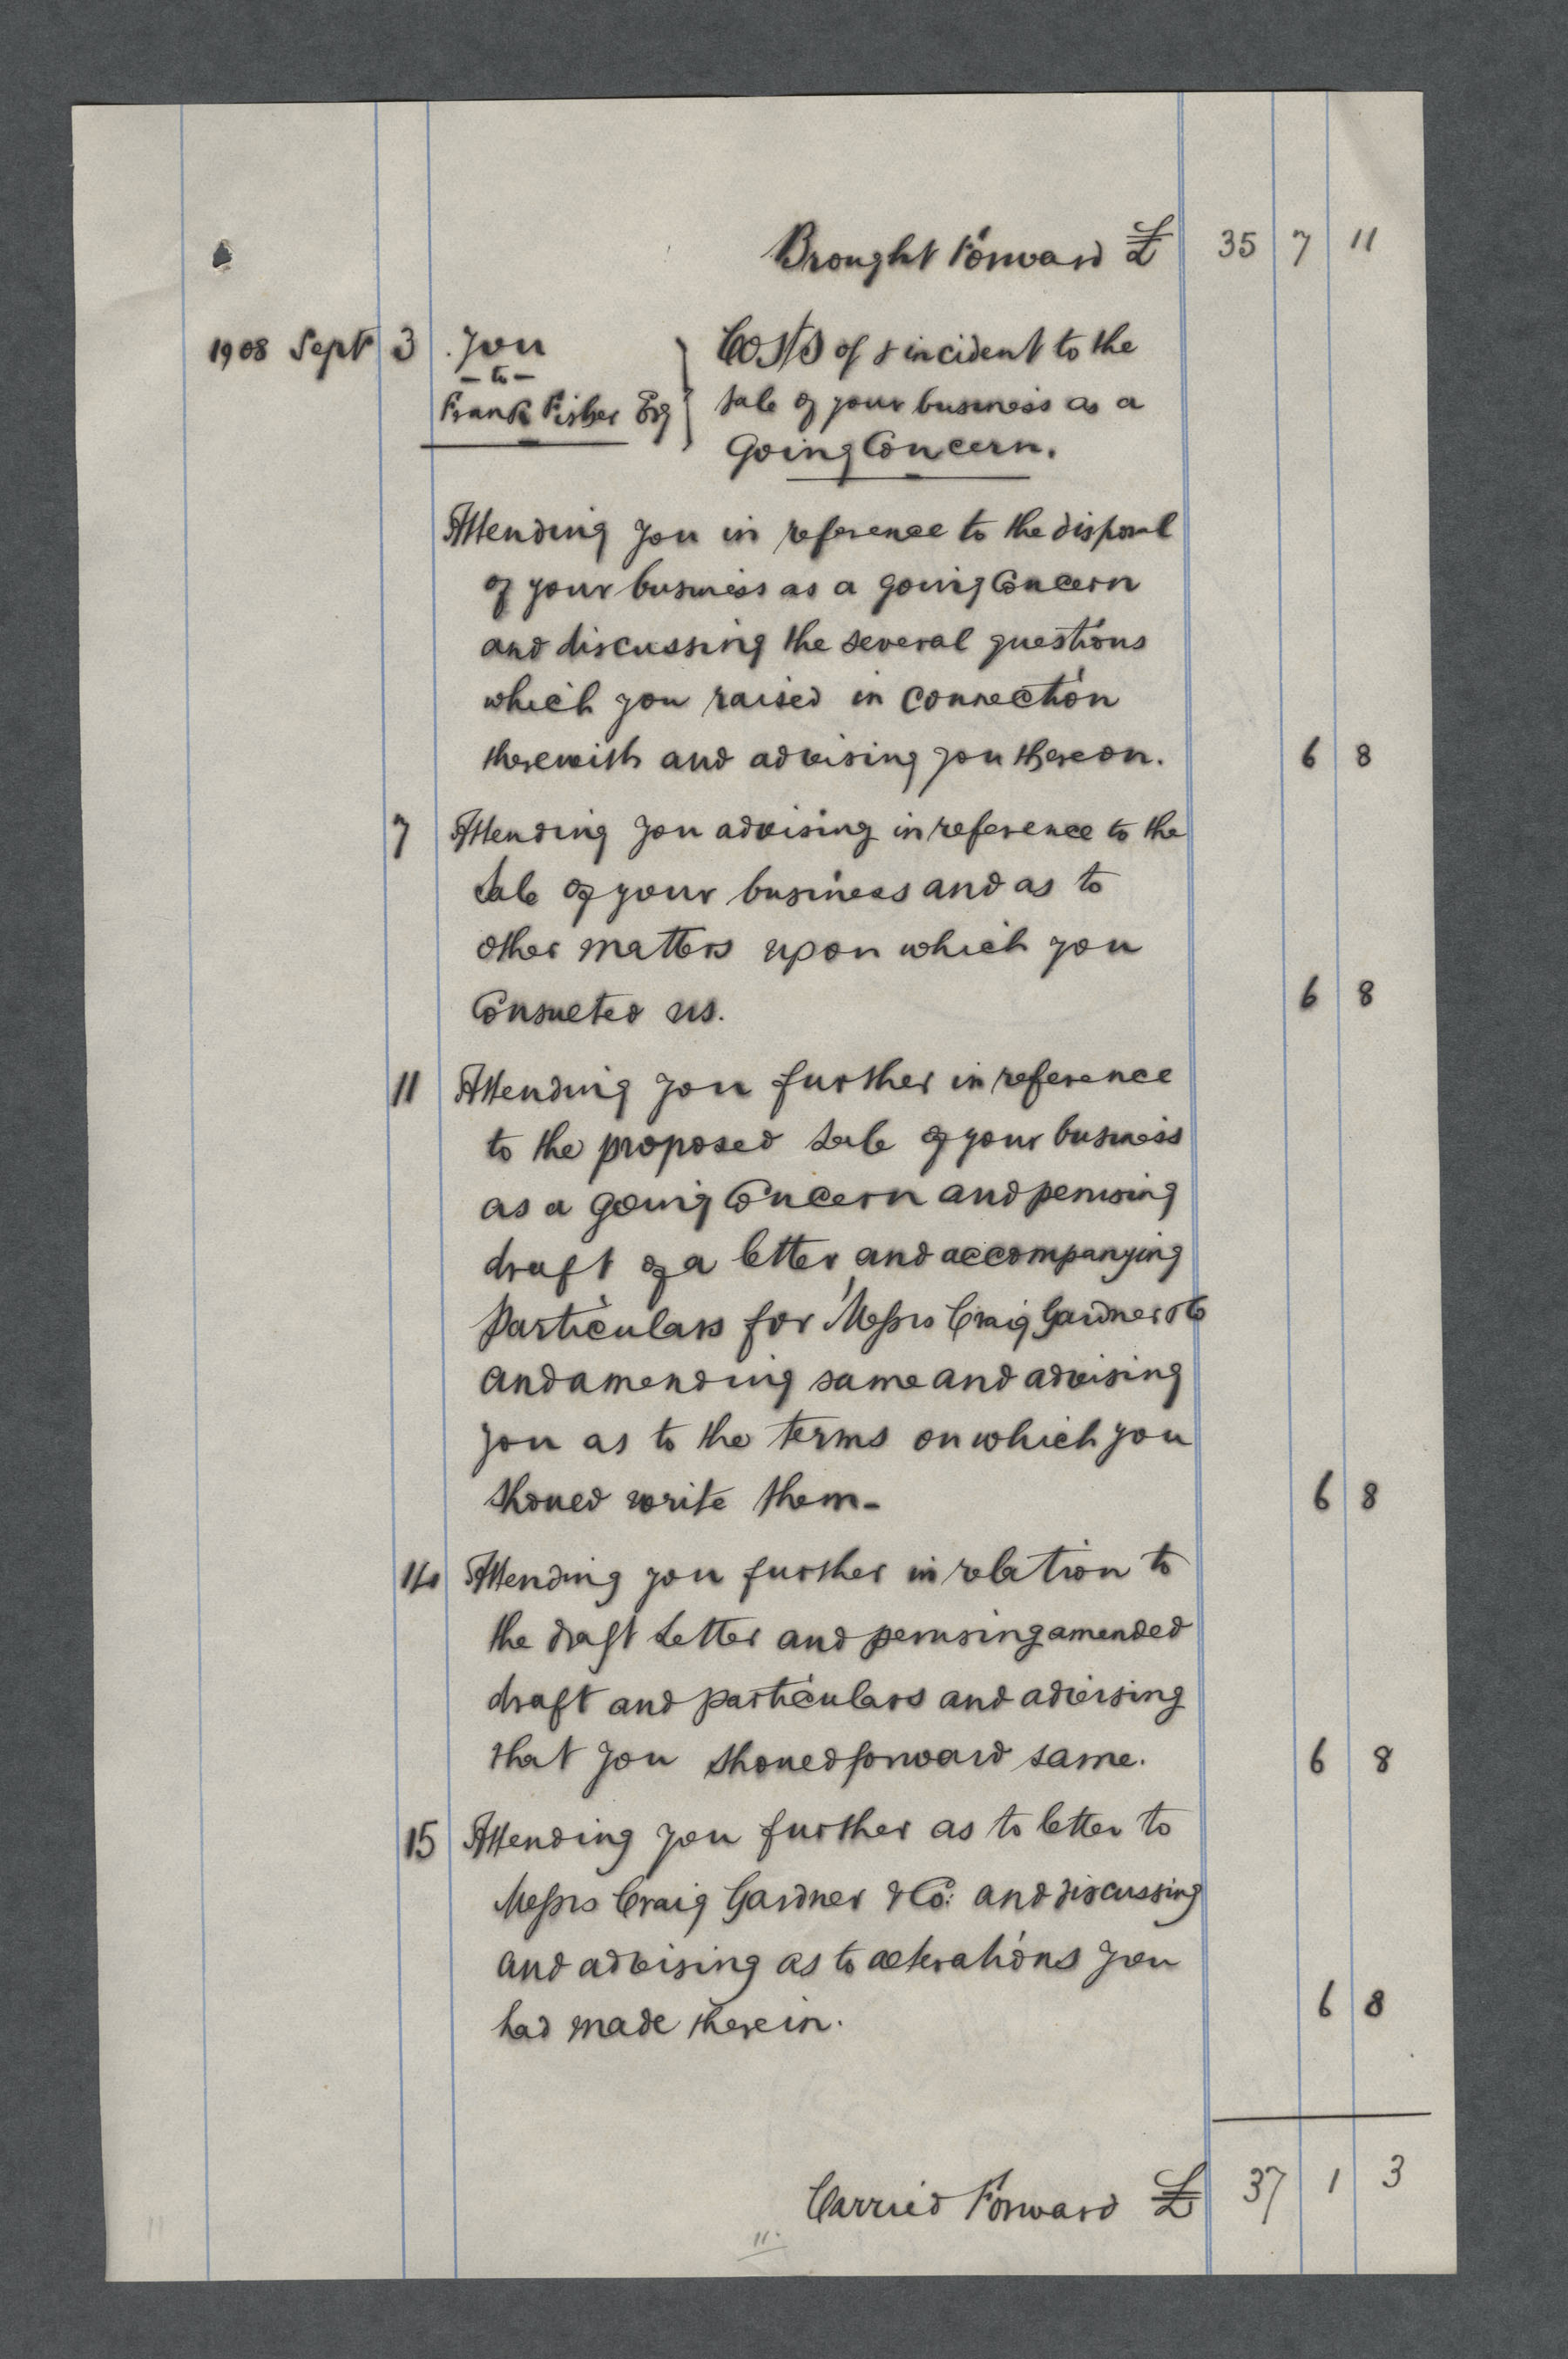 Brought Forward £ 35 7 11
1908 Sept 3 You Costs of & incident to the
- to -
Frank Fisher Esq sale of your business as a
Going Concern.
Attending you in reference to the disposal
of your business as a going Concern
and discussing the several questions
which you raised in connection
therewith and advising you thereon. 6 8
7 Attending you advising in reference to the
Sale of your business and as to
other matters upon which you
Consulted us. 6 8
11 Attending you further in reference
to the proposed sale of your business
as a going Concern and perusing
draft of a letter and accompanying
particulars for Messrs Craig Gardner & Co
and amending same and advising
you as to the terms on which you
should write them - 6 8
14 Attending you further in relation to
the draft letter and perusing amended
draft and particulars and advising
that you should forward same. 6 8
15 Attending you further as to letter to
Messrs Craig Gardner & Co: and discussing
and advising as to alterations you
had made therein. 6 8
Carried Forward £ 37 1 3
11
11